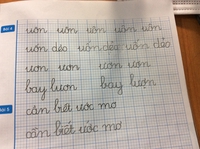 Bài 4
uôn uôn uôn uôn uôn
uốn dẻo uốn dẻo uốn dẻo
ươn ươn ươn ươn
bay lượn bay lượn
Bài 5
cần biết ước mơ
cần biết ước mơ